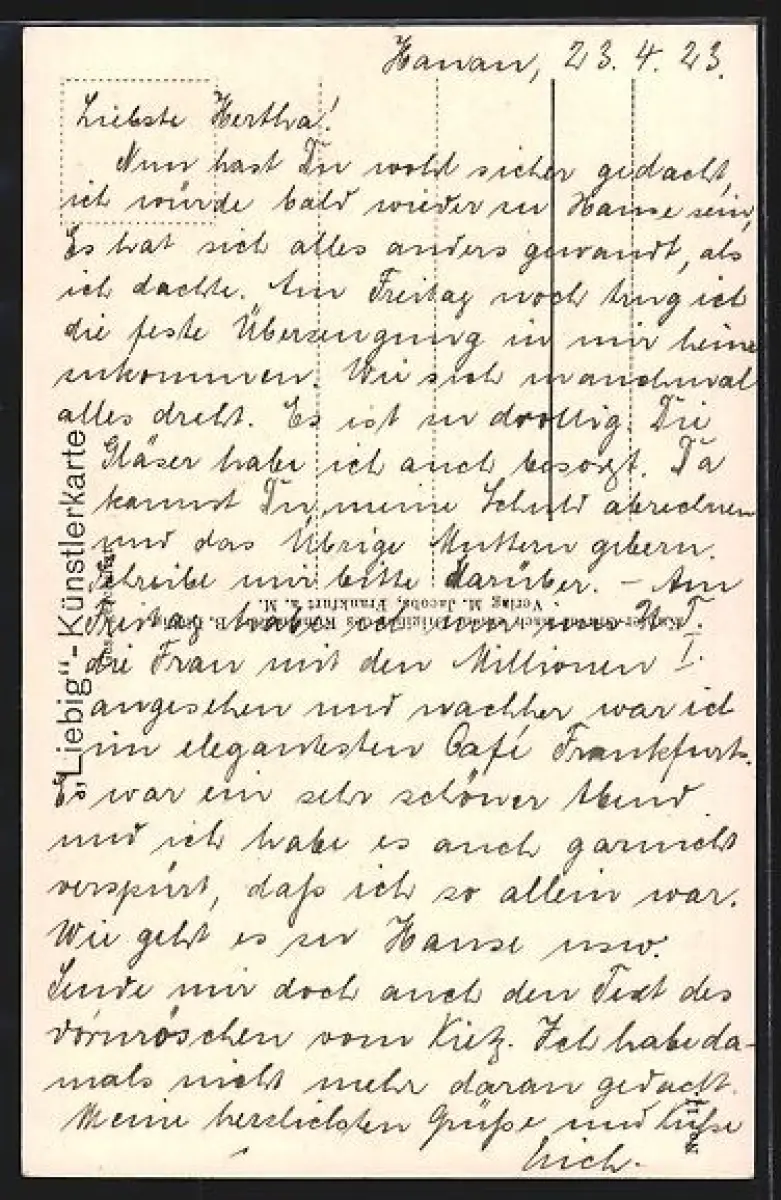 Hanau, 23. 4. 23.
Liebste Hertha!
Nun hast Du wohl sicher gedacht,
ich würde bald wieder zu Hause sein,
Es hat sich alles anders gewandt, als
ich dachte. Am Freitag noch trug ich
die feste Überzeugung in mir heim
zukommen. Wie sich manchmal
alles dreht. Es ist zu drollig. Die
Gläser habe ich auch besorgt. Da
kannst Du meine Schuld abrechnen
und das Übrige Muttern geben.
Schreibe mir bitte darüber. – Am
Freitag habe ich mir im U. T.
die Frau mit den Millionen I.
angesehen und nachher war ich
im elegantesten Café Frankfurts.
Es war ein sehr schöner Abend
und ich habe es auch garnicht
verspürt, daß ich so allein war.
Wie geht es zu Hause usw.
Sende mir doch auch den Text des
Dornröschen vom Kietz. Ich habe da-
mals nicht mehr daran gedacht.
Meine herzlichsten Grüße und Küsse
Erich.
„Liebig“-Künstlerkarte
Verlag M. Jacobs, Frankfurt a. M.
No. 17.